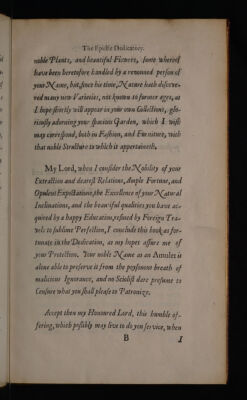 The Epistle Dedicatory.
noble Plants, and beautiful Flowers, some whereof
have been heretofore handled by a renowned person of
your Name, but since his time, Nature hath discove-
red many new Varieties, not known to former ages, as
I hope shortly will appear in your own Collections, glo-
riously adorning your spacious Garden, which I wish
may correspond, both in Fashion, and Furniture, with
that noble Structure to which it appertaineth.
My Lord, when I consider the Nobility of your
Extraction and dearest Relations, Ample Fortune, and
Opulent Expectations, the Excellence of your Natural
Inclinations, and the beautiful qualities you have ac-
quired by a happy Education, refined by Foreign Tra-
vels to sublime Perfection, I conclude this book as for-
tunate in the Dedication, as my hopes assure me of
your Protection. Your noble Name as an Amulet is
alone able to preserve it from the poysonous breath of
malicious Ignorance, and no Sciolist dare presume to
Censure what you shall please to Patronize.
Accept then my Honoured Lord, this humble of-
fering, which possibly may live to do you service, when
B I